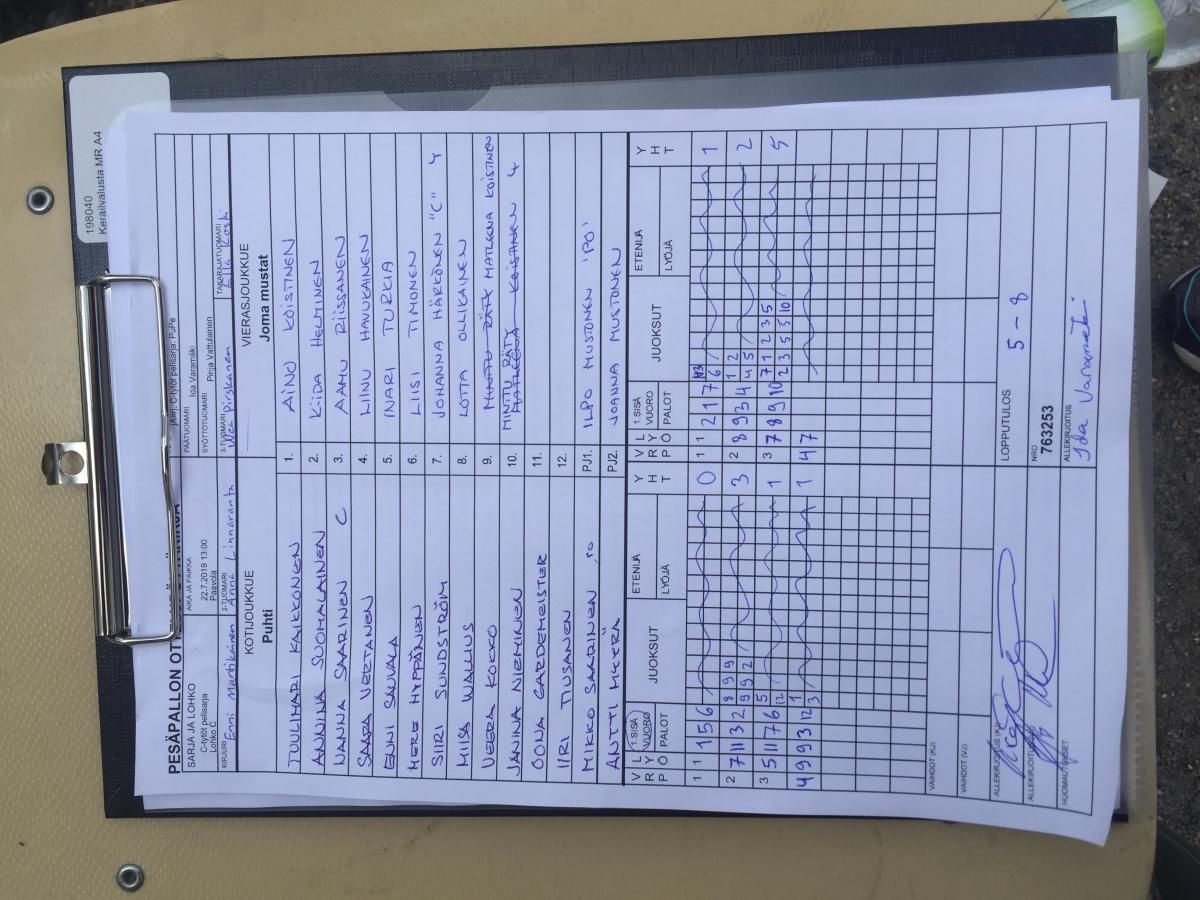 198040
Keräilyalusta MR A4
PESÄPALLON OT
SARJA JA LOHKO
C-tytöt pelisarja
Lohko C
AIKA JA PAIKKA
22.7.2019 13:00
Paavola
(Alrj. C-tytöt pelisarja: PuPe
PÄÄTUOMARI Ida Varamäki
SYÖTTÖTUOMARI Pirja Vattulainen
KIRJURI Enni Martikainen
2-TUOMARI Anna Linnaranta
3-TUOMARI Pirskanen
TAKARAJATUOMARI Ella Koski
KOTIJOUKKUE
Puhti
VIERASJOUKKUE
Joma mustat
TUULIMARI KAIKKONEN 1. AINO KOISTINEN
ANNINA SUOMALAINEN 2. KIIDA HELMINEN
NANNA SAARINEN C 3. AAMU RIISSANEN
SAARA VERTANEN 4. LIINU HAVUKAINEN
ENNI SAUVALA 5. INARI TURKIA
MERE HYPPÄNEN 6. LIISI TIMONEN
SIIRI SUNDSTRÖM 7. JOHANNA HÄRKÖNEN "C" Y
MIISA WALLIUS 8. LOTTA OLLIKAINEN
VEERA KOKKO 9. MINTTU RÄTY MATLEENA KOISTINEN
JANINA NIEMINEN 10. MINTTU RÄTY MATLEENA KOISTINEN 4
OONA GARDEMEISTER 11.
IIRI TIUSANEN 12.
MIKKO SAARINEN PJ1. ILPO MUSTONEN 'PO'
ANTTI PJ2. JOANNA MUSTONEN
V R P L Y Ö 1.SISÄ VUORO PALOT JUOKSUT ETENIJÄ LYÖJÄ Y H T V R P L Y Ö 1.SISÄ VUORO PALOT JUOKSUT ETENIJÄ LYÖJÄ Y H T
1 1 1 5 6 0 1 1 2 1 7 6 1
2 7 11 3 2 8 9 9 9 9 2 3 2 8 9 3 4 1 2 4 5 2
3 5 11 7 6 5 12 1 3 7 8 9 10 7 1 2 3 5 2 3 5 5 10 5
4 9 9 3 12 1 3 1 1 4 7
VAIHDOT (KJ)
VAIHDOT (VJ)
ALLEKIRJOITUS (KJ)
LOPPUTULOS 5 - 8
NRO
763253
ALLEKIRJOITUS
Ida Varamäki
HUOMAUTUKSET